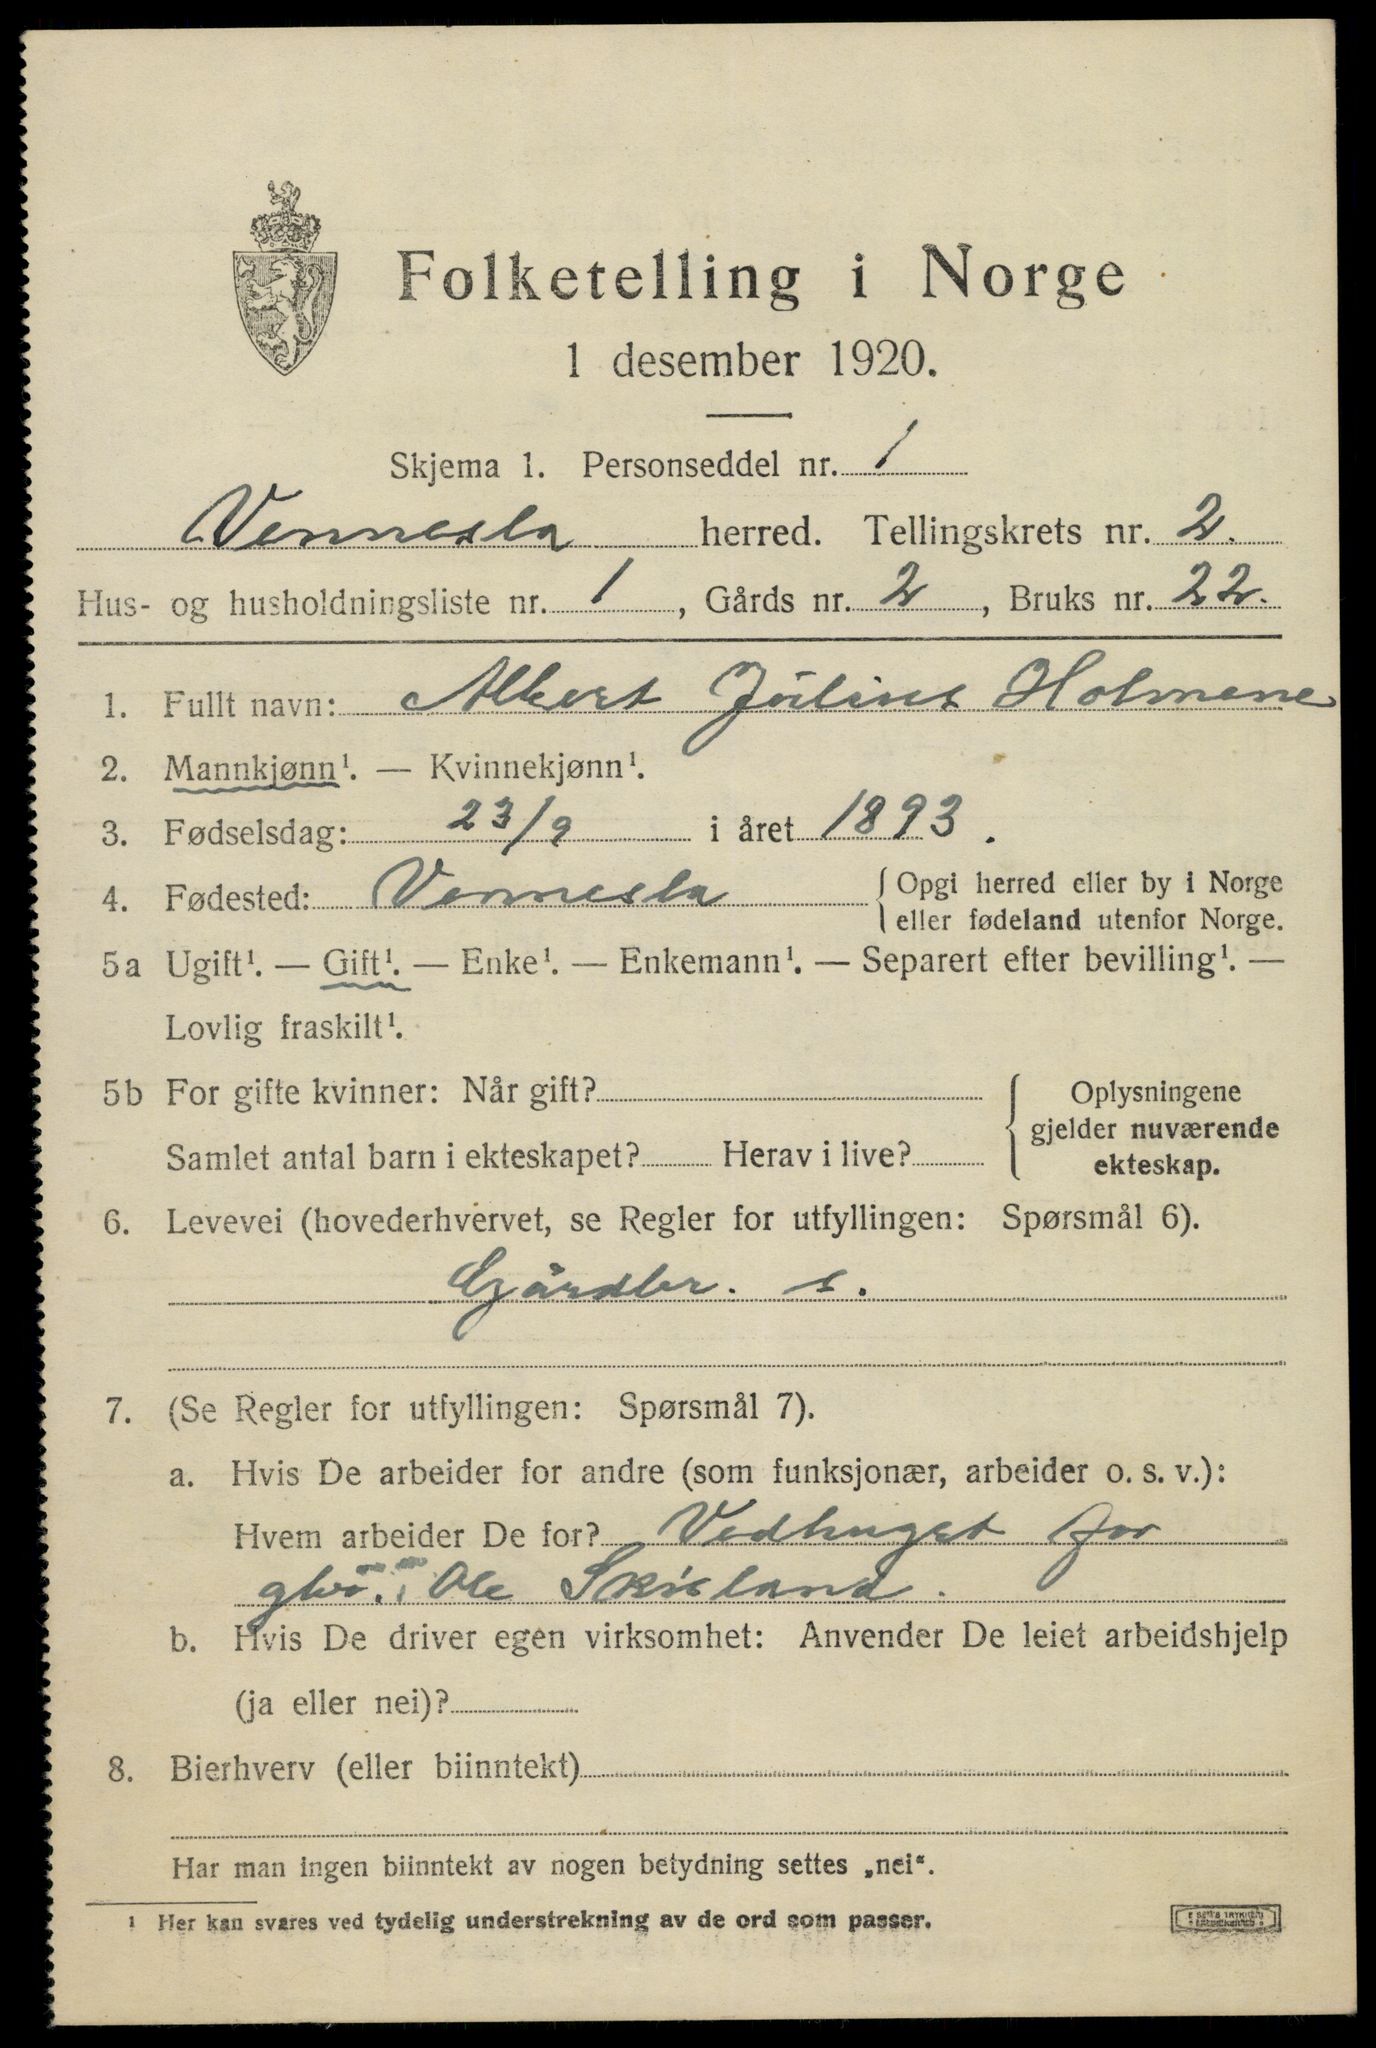 Folketelling i Norge
1 desember 1920.
Skjema 1. Personseddel nr. 1
Vennesla herred. Tellingskrets nr. 2.
Hus- og husholdningsliste nr. 1, Gårds nr. 2, Bruks nr. 22.
1. Fullt navn: Albert Július Holmene
2. Mannkjønn¹. — Kvinnekjønn¹.
3. Fødselsdag: 23/9 i året 1893.
4. Fødested: Vennesla {Opgi herred eller by i Norge
eller fødeland utenfor Norge.
5a Ugift¹. — Gift¹. — Enke¹. — Enkemann¹. — Separert efter bevilling¹. —
Lovlig fraskilt¹.
5b For gifte kvinner: Når gift?
Samlet antal barn i ekteskapet? Herav i live?
{Oplysningene
gjelder nuværende
ekteskap.
6. Levevei (hovederhvervet, se Regler for utfyllingen: Spørsmål 6).
Gårdbr. s.
7. (Se Regler for utfyllingen: Spørsmål 7).
a. Hvis De arbeider for andre (som funksjonær, arbeider o. s. v.):
Hvem arbeider De for? Vedhuget for
Ole
b. Hvis De driver egen virksomhet: Anvender De leiet arbeidshjelp
(ja eller nei)?
8. Bierhverv (eller biinntekt)
Har man ingen biinntekt av nogen betydning settes „nei“.
¹ Her kan svares ved tydelig understrekning av de ord som passer.